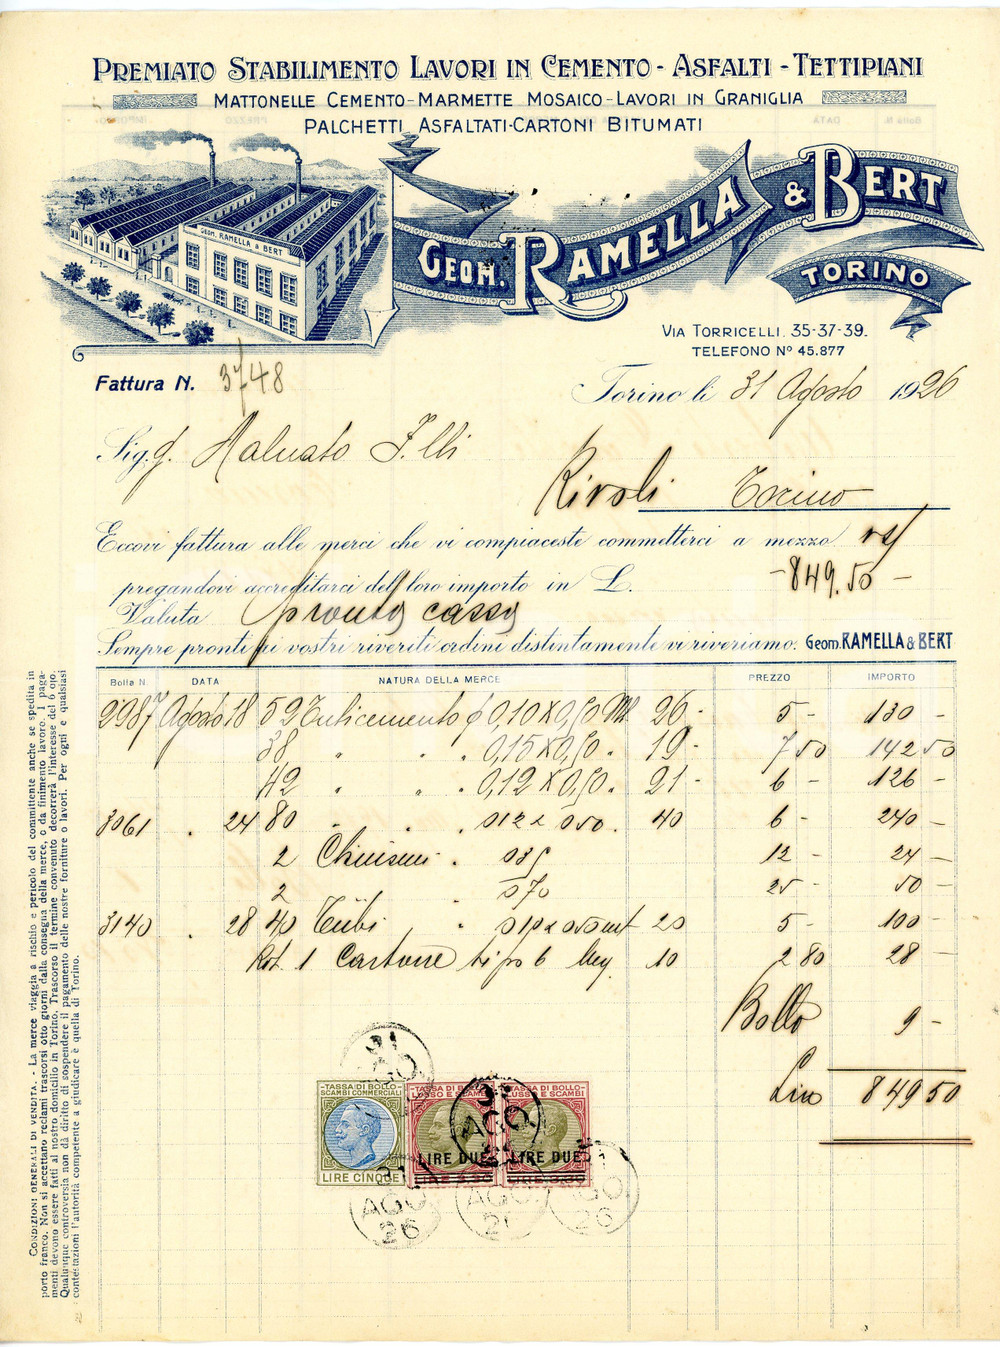 PREMIATO STABILIMENTO LAVORI IN CEMENTO - ASFALTI - TETTIPIANI
MATTONELLE CEMENTO-MARMETTE MOSAICO-LAVORI IN GRANIGLIA
PALCHETTI ASFALTATI-CARTONI BITUMATI
GEOM. RAMELLA & BERT
GEOM. RAMELLA & BERT
TORINO
VIA TORRICELLI. 35-37-39.
TELEFONO Nº 45.877
Fattura N. 3748
Torino li 31 Agosto 1926
Sig. Malvato F.lli
Rivoli Torino
Eccovi fattura alle merci che vi compiaceste commetterci a mezzo
pregandovi accreditarci del loro importo in L. -849.50-
Valuta pronta cassa
Sempre pronti ai vostri riveriti ordini distintamente vi riveriamo: Geom. RAMELLA & BERT
Bolla N. DATA NATURA DELLA MERCE PREZZO IMPORTO
2987 Agosto 18 52 Tubicemento 0,10x0,50 Ml 26- 5- 130-
38 " " " 0,15x0,50. 19- 7 50 142 50
42 " " " 0,12x0,50. 21- 6- 126-
3061 " 24 80 " " " 012x050. 40 6- 240-
2 Chiusini " 035 12- 24-
2 " 070 25- 50-
3140 " 28 40 Tubi " 010x050 mt 20 5- 100-
Rot. 1 Cartone tipo 6 Mq 10 2 80 28-
Bollo 9-
Lire 849 50
TASSA DI BOLLO
SCAMBI COMMERCIALI
LIRE CINQUE
TASSA DI BOLLO
LUSSO E SCAMBI
LIRE DUE
TASSA DI BOLLO
LUSSO E SCAMBI
LIRE DUE
31
AGO
26
AGO
26
AGO
26
CONDIZIONI GENERALI DI VENDITA. - La merce viaggia a rischio e pericolo del committente anche se spedita in
porto franco. Non si accettano reclami trascorsi otto giorni dalla consegna della merce, o da finimento lavoro. I paga-
menti devono essere fatti al nostro domicilio in Torino. Trascorso il termine convenuto decorrerà l'interesse del 6 o/o.
Qualunque controversia non dà diritto di sospendere il pagamento delle nostre forniture o lavori. Per ogni e qualsiasi
contestazioni l'autorità competente a giudicare è quella di Torino.